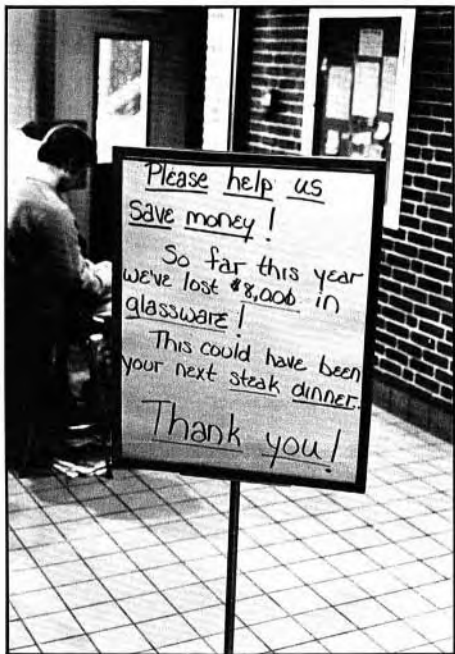 Please help us
save money!
So far this year
we've lost $8,000 in
glassware!
This could have been
your next steak dinner.
Thank you!